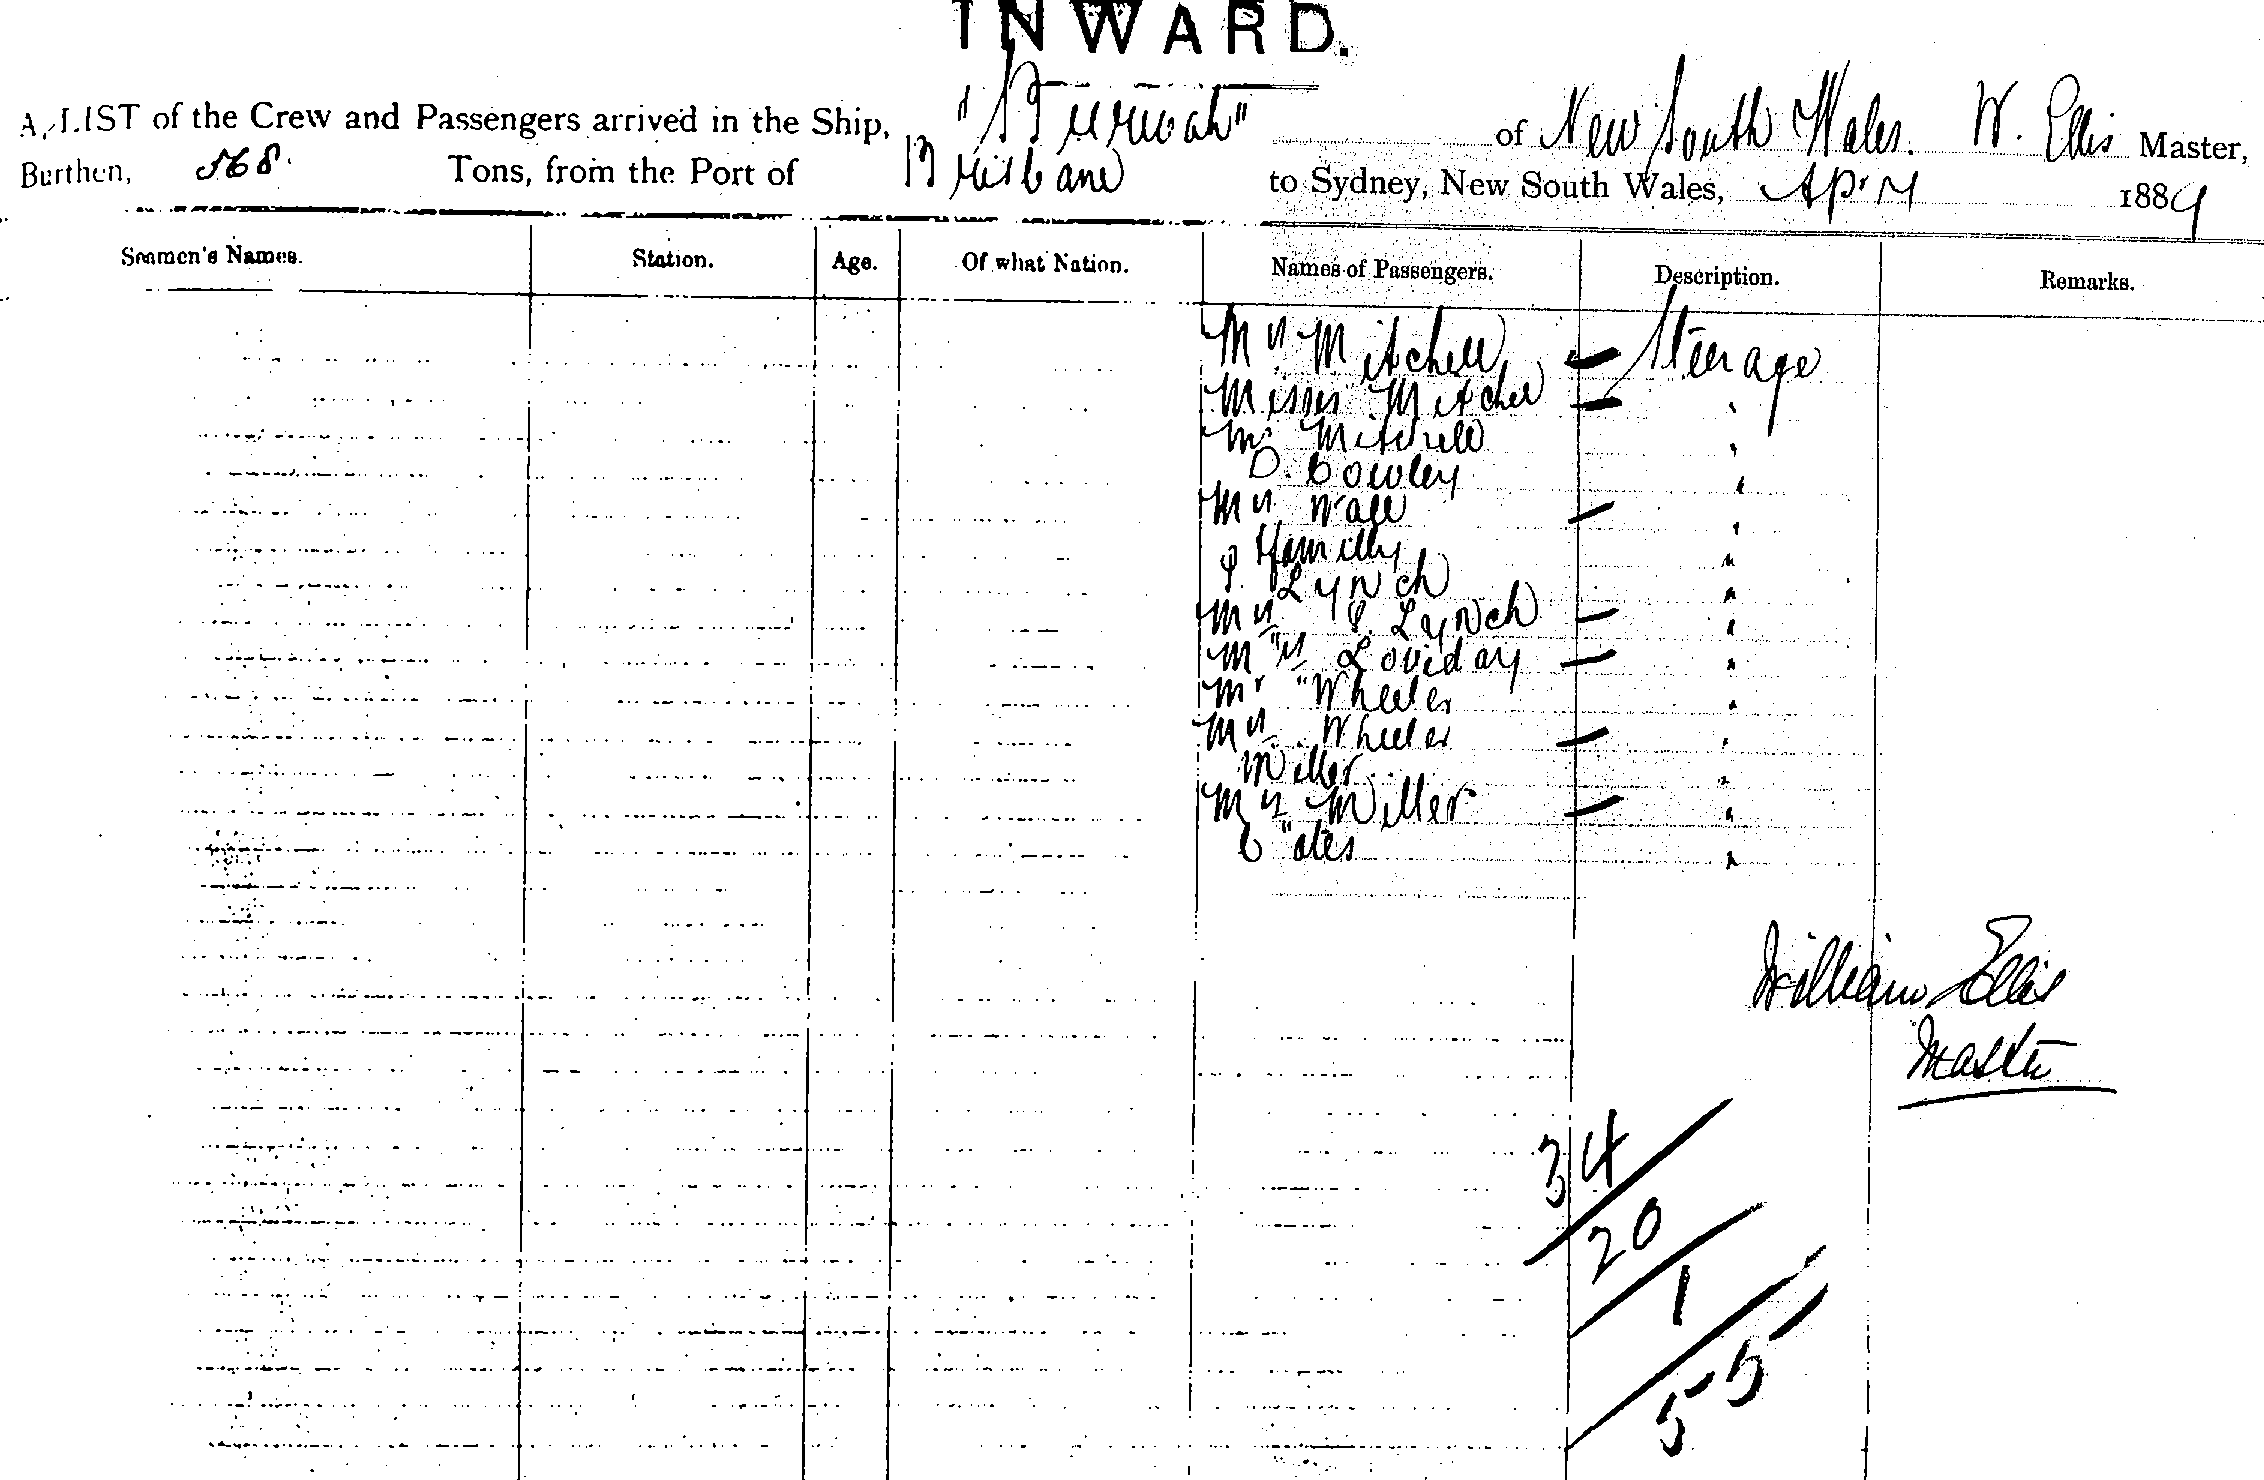 INWARD.
A LIST of the Crew and Passengers arrived in the Ship, " of New South Wales. W. Ellis Master,
Burthen, 568 Tons, from the Port of Brisbane to Sydney, New South Wales, Apr 1889
Seamen's Names. Station. Age. Of what Nation. Names of Passengers. Description. Remarks.
Mrs Mitchell — Steerage
Misses Mitchell — "
Mr Mitchell "
D. Cowley "
Mrs Wall — "
& family "
Lynch "
Mrs Lynch — "
Mrs Loviday — "
Mr Wheeler "
Mrs Wheeler — "
Miller "
Mrs Miller — "
"
William Ellis
Master
34
20
1
55